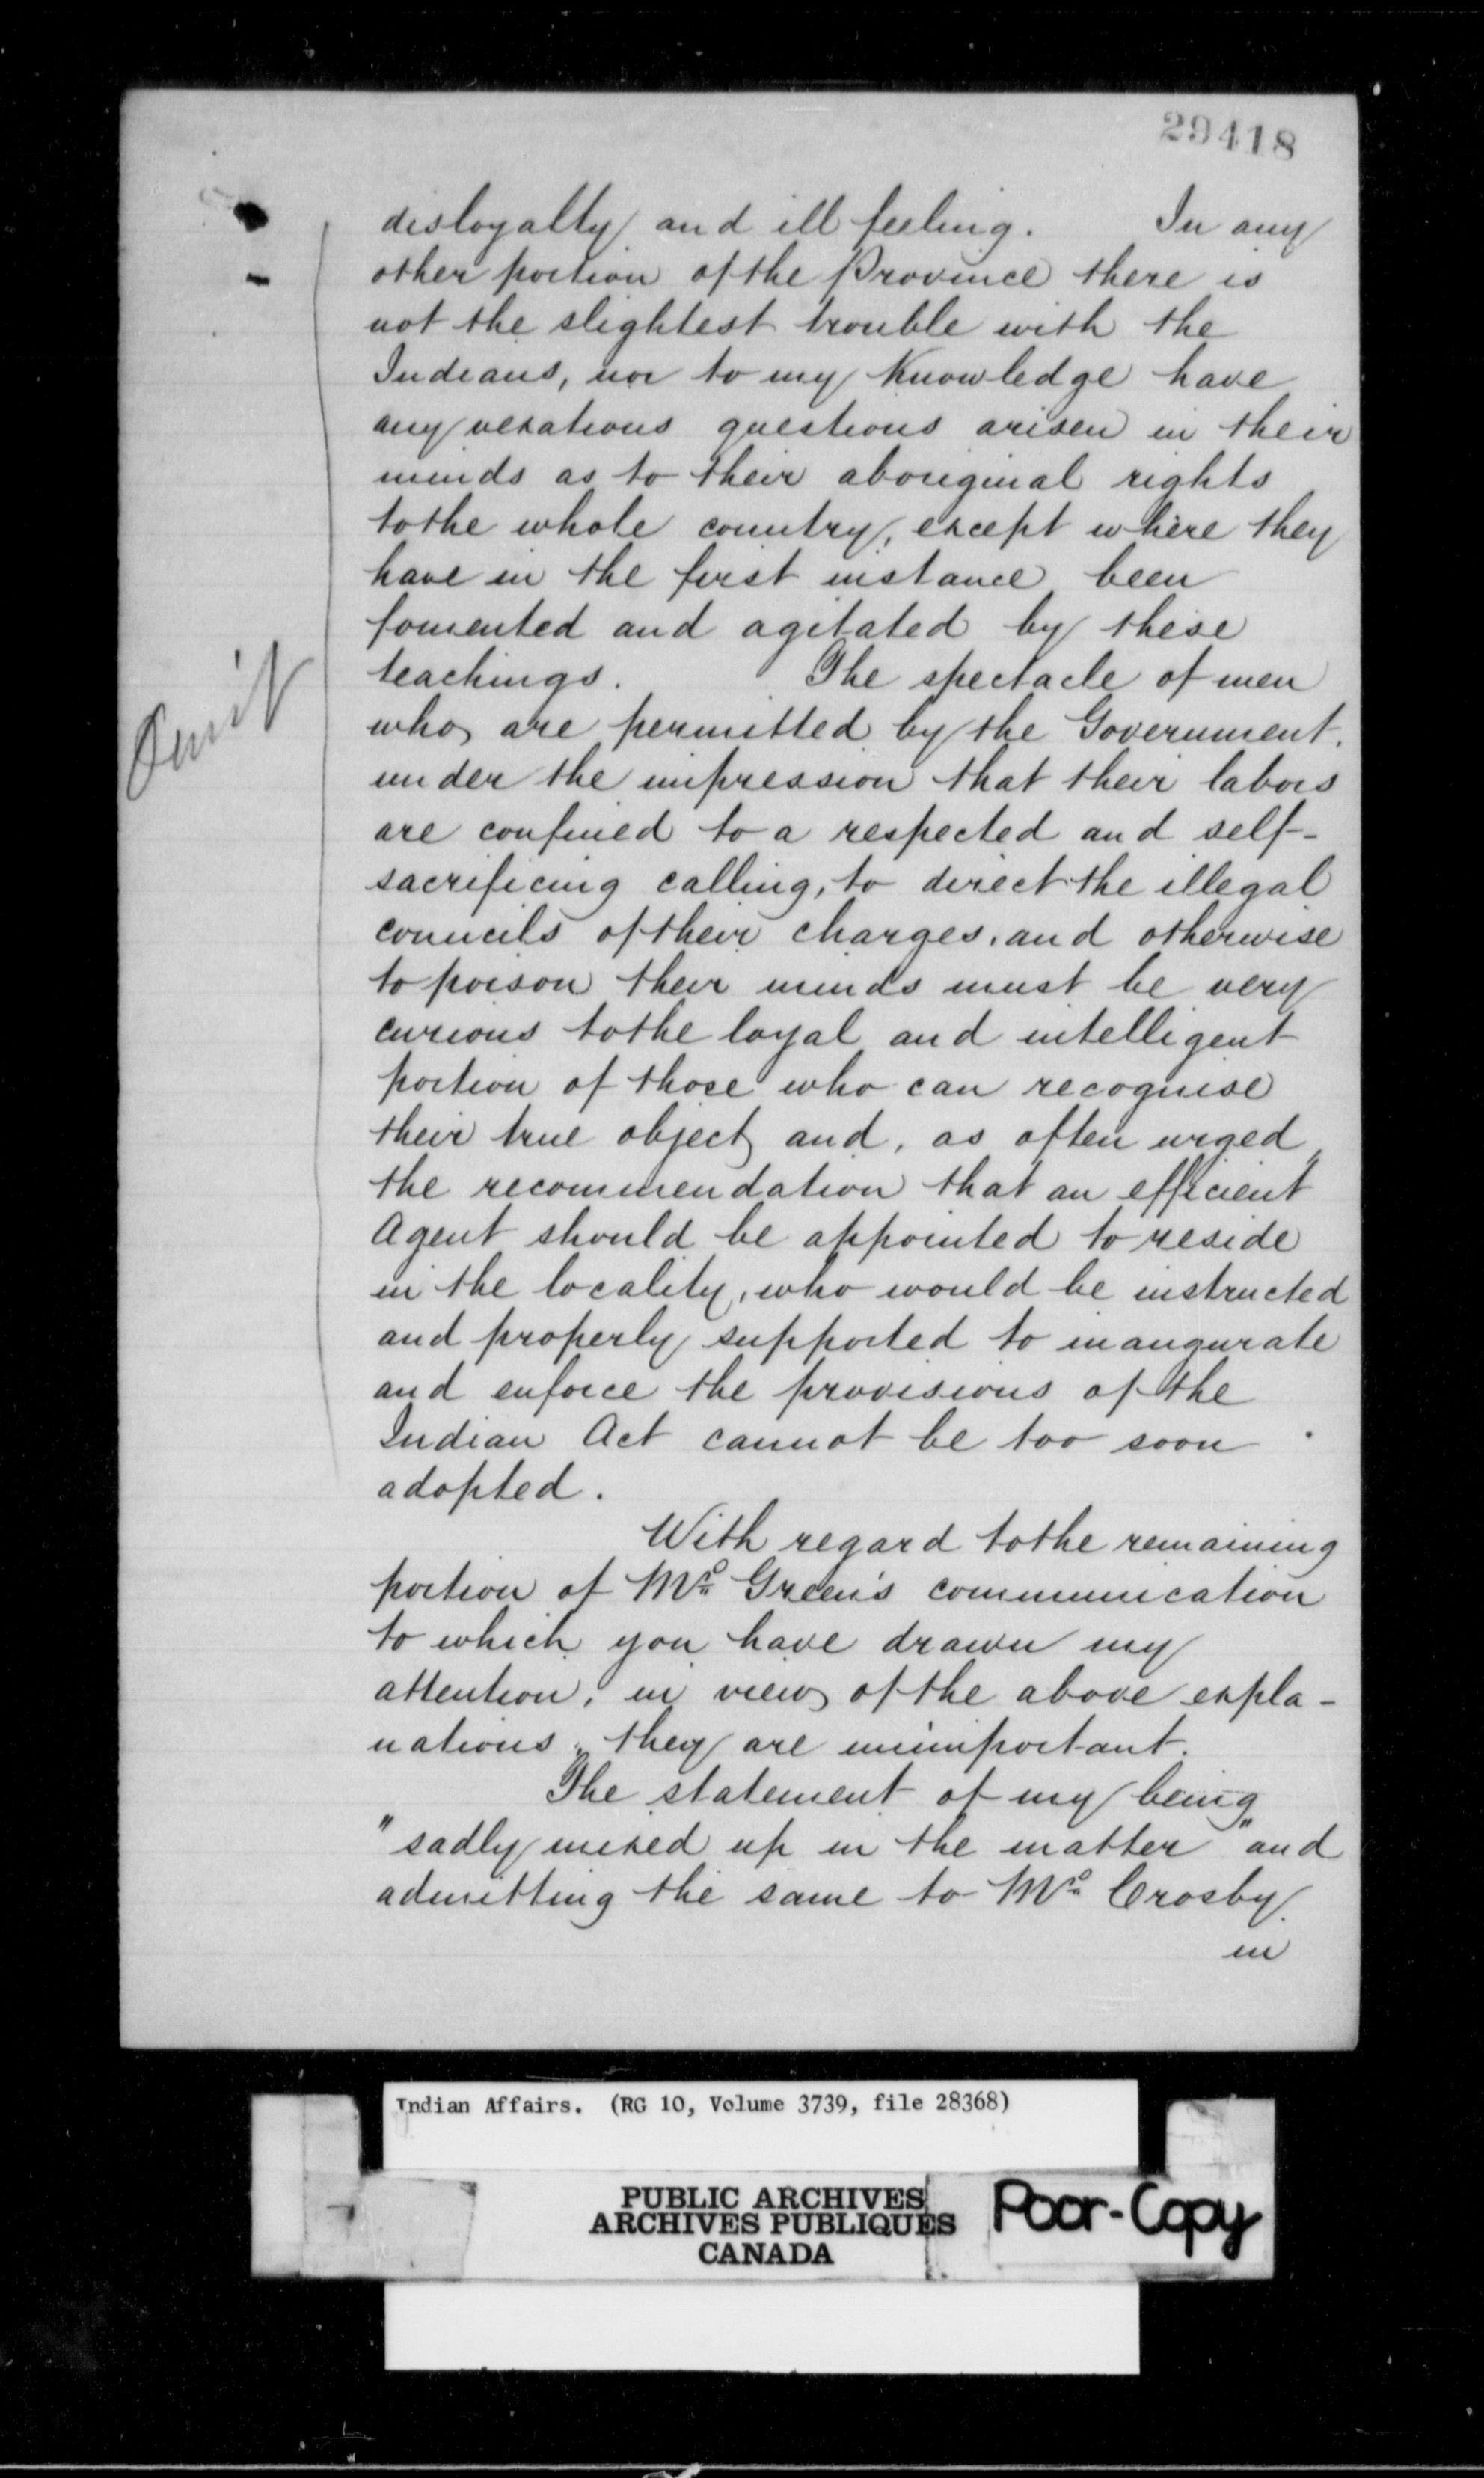 29418
disloyalty and ill feeling. In any
other portion of the Province there is
not the slightest trouble with the
Indians, nor to my Knowledge have
any vexatious questions arisen in their
minds as to their aboriginal rights
to the whole country, except where they
have in the first instance been
fomented and agitated by these
teachings. The spectacle of men
who are permitted by the Government,
under the impression that their labors
are confined to a respected and self-
sacrificing calling, to direct the illegal
councils of their charges, and otherwise
to poison their minds must be very
curious to the loyal and intelligent
portion of those who can recognise
their true object, and, as often urged,
the recommendation that an efficient
Agent should be appointed to reside
in the locality, who would be instructed
and properly supported to inaugurate
and enforce the provisions of the
Indian Act cannot be too soon
adopted.
Omit
With regard to the remaining
portion of Mr. Green's communication
to which you have drawn my
attention, in view of the above expla-
nations, they are unimportant.
The statement of my being
"sadly mixed up in the matter" and
admitting the same to Mr. Crosby
in
Indian Affairs. (RG 10, Volume 3739, file 28368)
PUBLIC ARCHIVES
ARCHIVES PUBLIQUES
CANADA
Poor-Copy